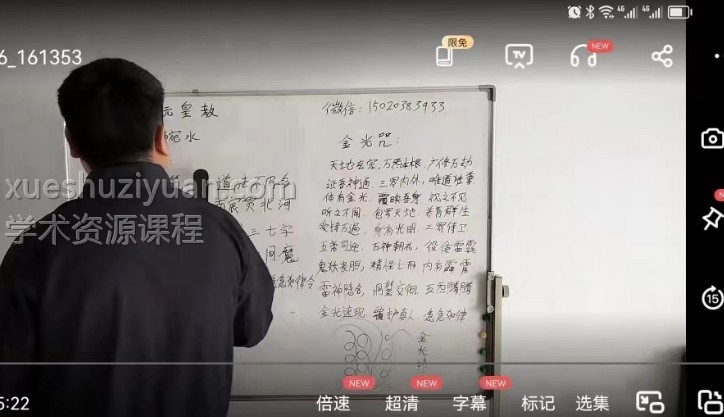 6_161353
限免
NEW
元皇教
微信: 15020383933
碗水
金光咒:
天地玄宗,万炁本根,广修万劫
证吾神通,三界内外,唯道独尊
体有金光,覆映吾身,视之不见
听之不闻,包罗天地,养育群生
受持万遍,身有光明,三界侍卫
五帝司迎,万神朝礼,役使雷霆
鬼妖丧胆,精怪亡形,内有霹雳
雷神隐名,洞慧交彻,五炁腾腾
金光速现,覆护真人,急急如律
北河
三七字
魔
急急如律令
金光
xueshuziyuan.com
学术资源课程
NEW
15
5:22
倍速
NEW
超清
NEW
字幕
NEW
标记
选集